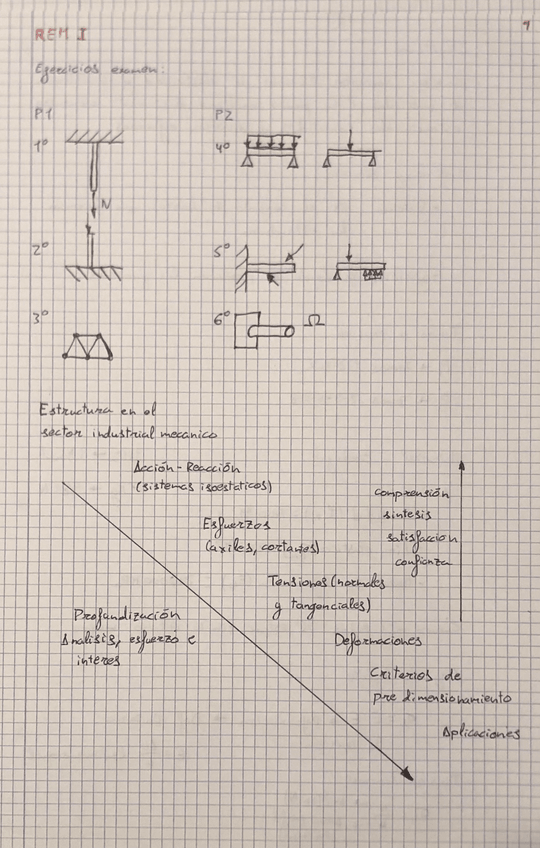 REM I
Ejercicios examen:
P1
P2
1º
4º
N
2º
5º
3º
6º
Ω
Estructura en el
sector industrial mecanico
Acción-Reacción
(sistemas isoestaticos)
Esfuerzos
(axiles, cortantes)
comprensión
sintesis
satisfaccion
confianza
Tensiones (normales
y tangenciales)
Profundización
Analisis, esfuerzo e
interes
Deformaciones
Criterios de
pre dimensionamiento
Aplicaciones